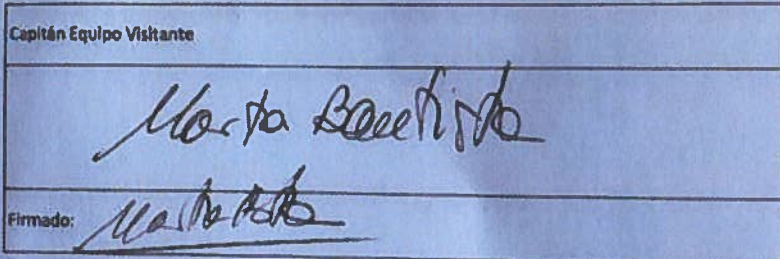 Capitán Equipo Visitante
Marta Bautista
Firmado: Marta